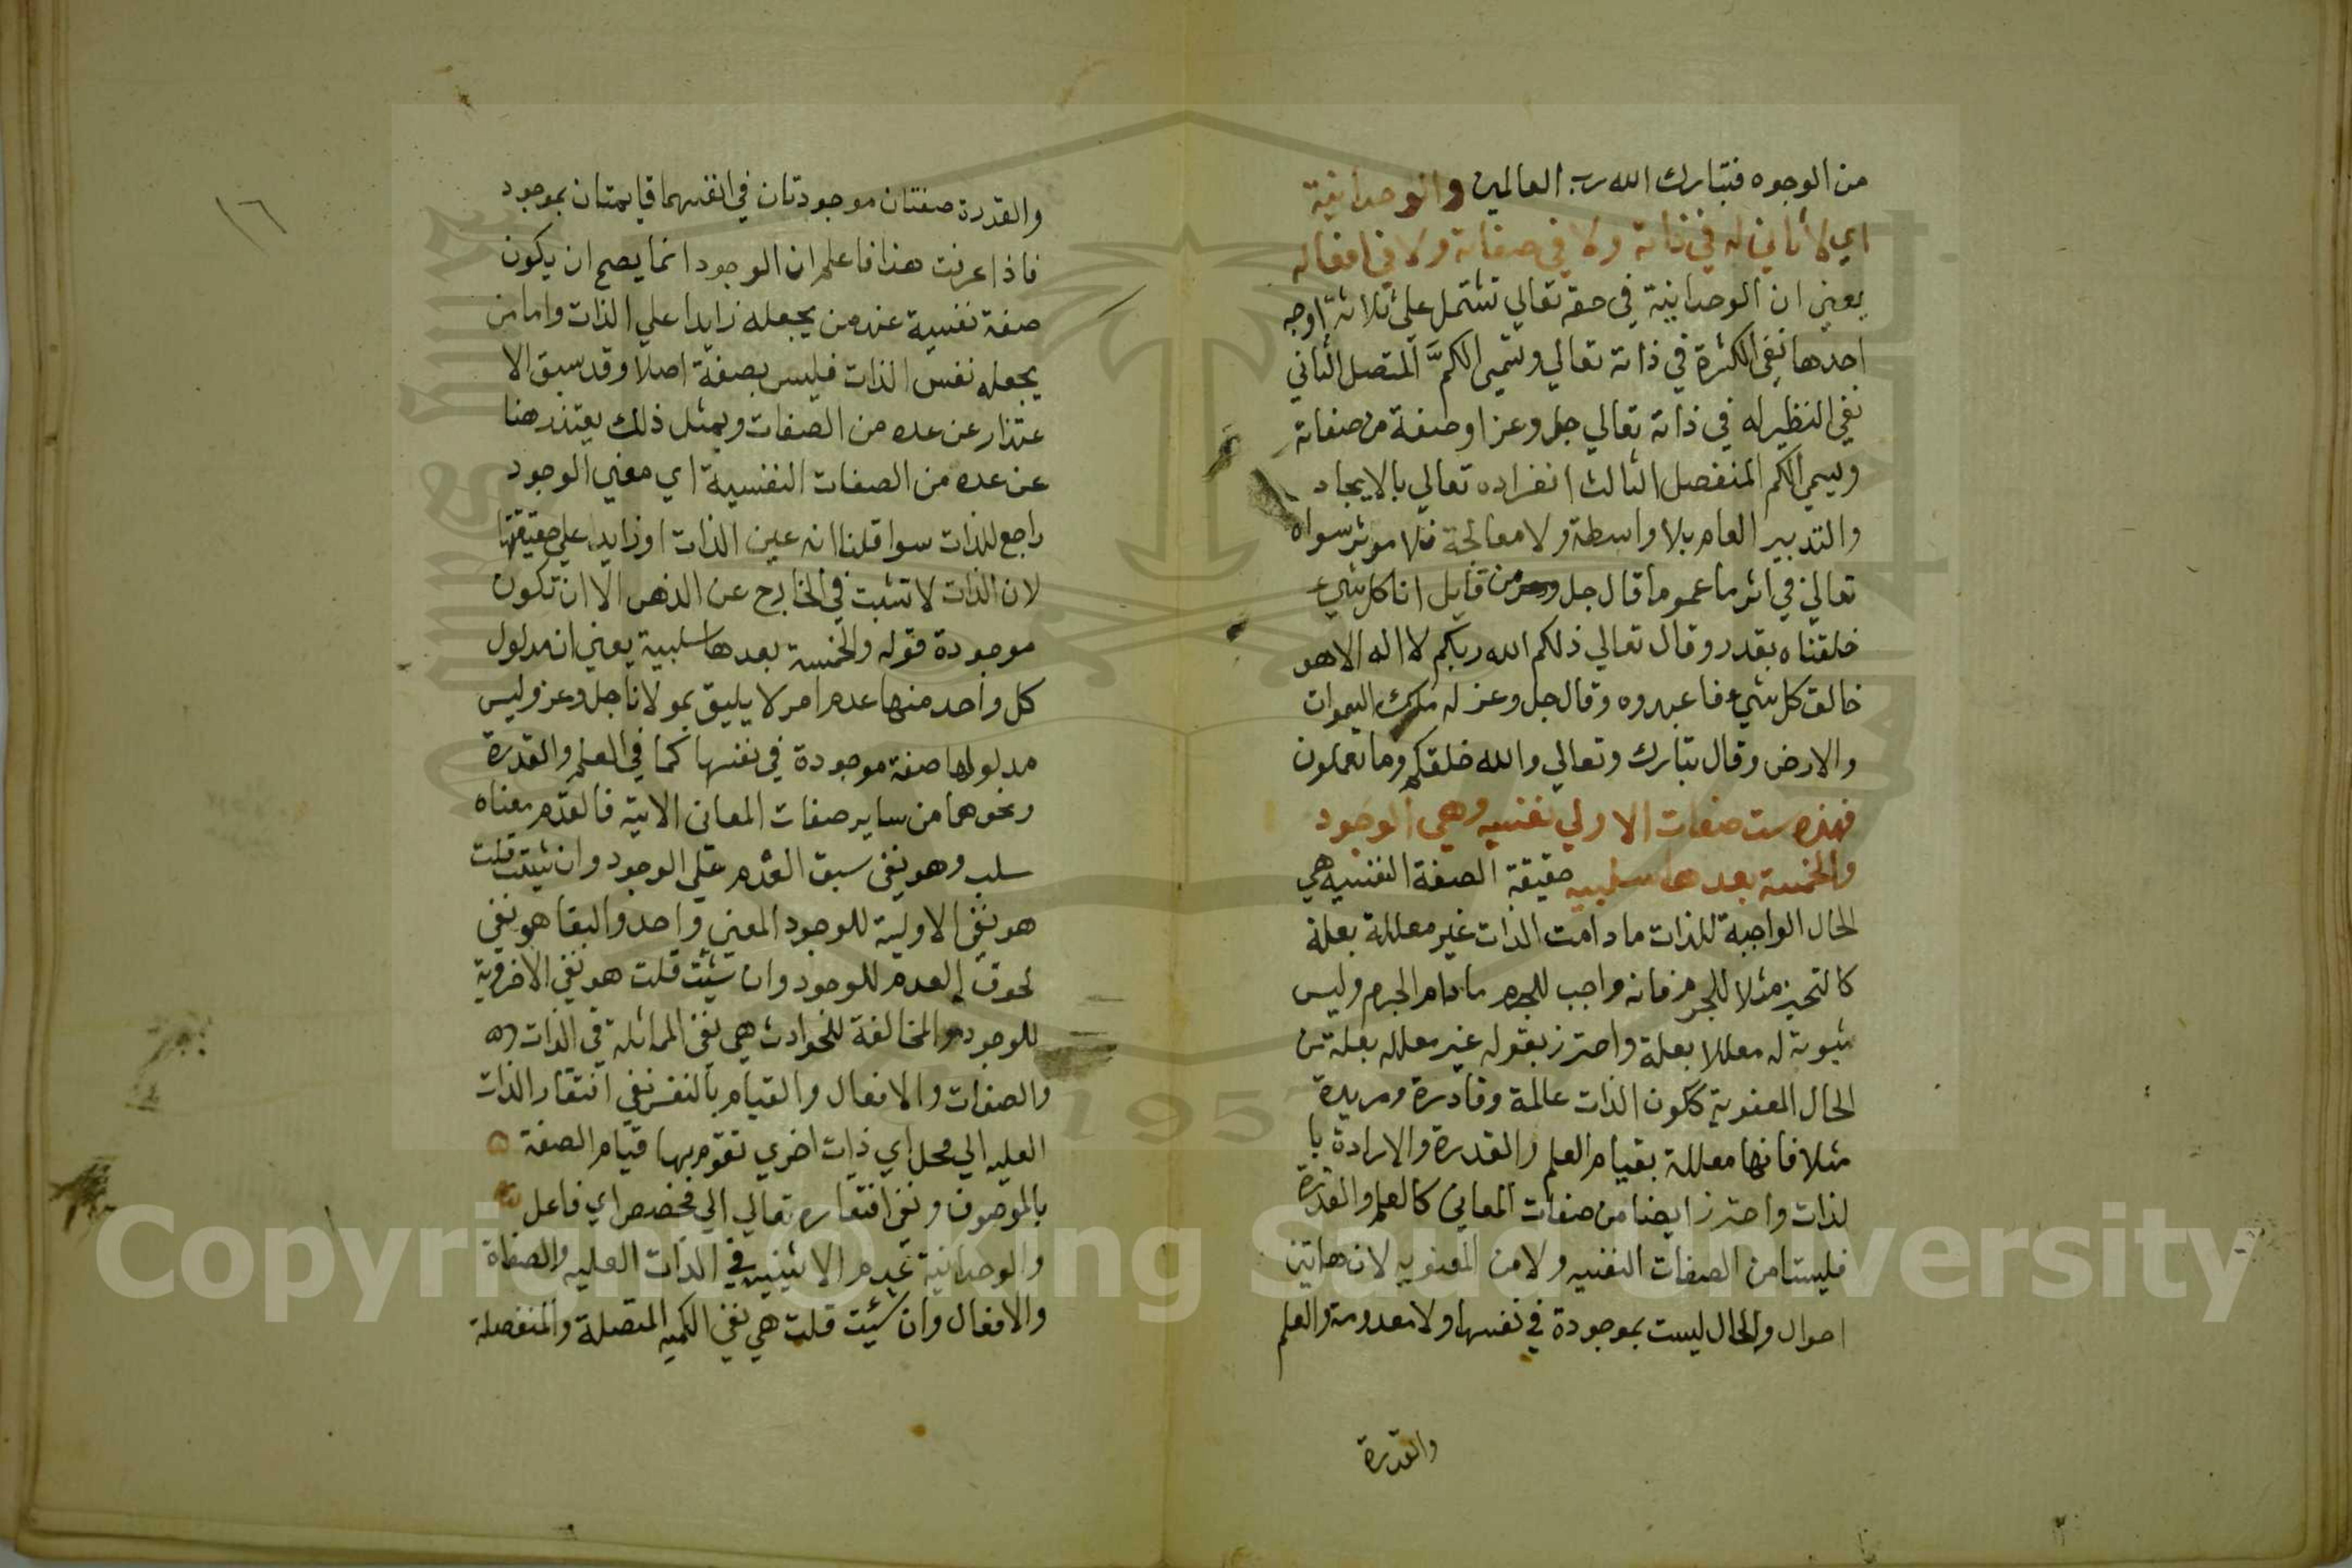 من الوجوه فتبارك الله رب العالمين والوحدانية
اي لا ثاني له في ذاته ولا في صفاته ولا في افعاله
يعني ان الوحدانية في حقه تعالي تشتمل علي ثلاثة اوجه
احدها نفي الكثرة في ذاته تعالي ويسمي الكم المتصل الثاني
نفي النظير له في ذاته تعالي جل وعز او صفة من صفاته
ويسمي الكم المنفصل الثالث انفراده تعالي بالايجاد
والتدبير العام بلا واسطة ولا معالجة فلا موثر سواه
تعالي في اثر ما عموما قال جل من قايل انا كل شيء
خلقناه بقدر وقال تعالي ذلكم الله ربكم لا اله الا هو
خالق كل شيء فاعبدوه وقال جل وعز له ملك السموات
والارض وقال تبارك وتعالي والله خلقكم وما تعملون
فهذه ست صفات الاولي نفسيه وهي الوجود
والخمسة بعدها سلبيه حقيقة الصفة النفسيه هي
الحال الواجبة للذات ما دامت الذات غير معللة بعلة
كالتحيز مثلا للجرم فانه واجب للجرم مادام الجرم وليس
ثبوته له معللا بعلة واحترز بقوله غير معلله بعلة من
الحال المعنوية ككون الذات عالمة وقادرة ومريدة
مثلا فانها معللة بقيام العلم والقدرة والارادة با
لذات واحترز ايضا من صفات المعاني كالعلم والقدرة
فليستا من الصفات النفسيه ولا من المعنويه لان هاتين
احوال والحال ليست بموجودة في نفسها ولا معدومة والعلم
والقدرة
١٦
والقدرة صفتان موجودتان في انفسهما قايمتان بموجود
فاذا عرفت هذا فاعلم ان الوجود انما يصح ان يكون
صفة نفسية عند من يجعله زايدا علي الذات واما من
يجعله نفس الذات فليس بصفة اصلا وقد سبق الا
عتذار عن عده من الصفات وبمثل ذلك يعتذر هنا
عن عده من الصفات النفسية اي معني الوجود
راجع للذات سوا قلنا انه عين الذات او زايد علي حقيقتها
لان الذات لا تثبت في الخارج عن الذهن الا ان تكون
موجودة قوله والخمسة بعدها سلبية يعني ان مدلول
كل واحد منها عدم امر لا يليق بمولانا جل وعز وليس
مدلولها صفة موجودة في نفسها كما في العلم والقدرة
ونحوهما من ساير صفات المعاني الاتية فالقدم معناه
سلب وهو نفي سبق العدم علي الوجود وان شيت قلت
هو نفي الاولية للوجود المعني واحد والبقا هو نفي
لحوق العدم للوجود وان شئت قلت هو نفي الاخروية
للوجود والمخالفة للحوادث هي نفي المماثلة في الذات
والصفات والافعال والقيام بالنفس نفي افتقار الذات
العليه الي محل اي ذات اخري تقوم بها قيام الصفة
بالموصوف ونفي افتقاره تعالي الي مخصص اي فاعل
والوحدانية عدم الاثنينيه في الذات العليه والصفاة
والافعال وان شئت قلت هي نفي الكميه المتصلة والمنفصلة
Copyright © King Saud University
1957